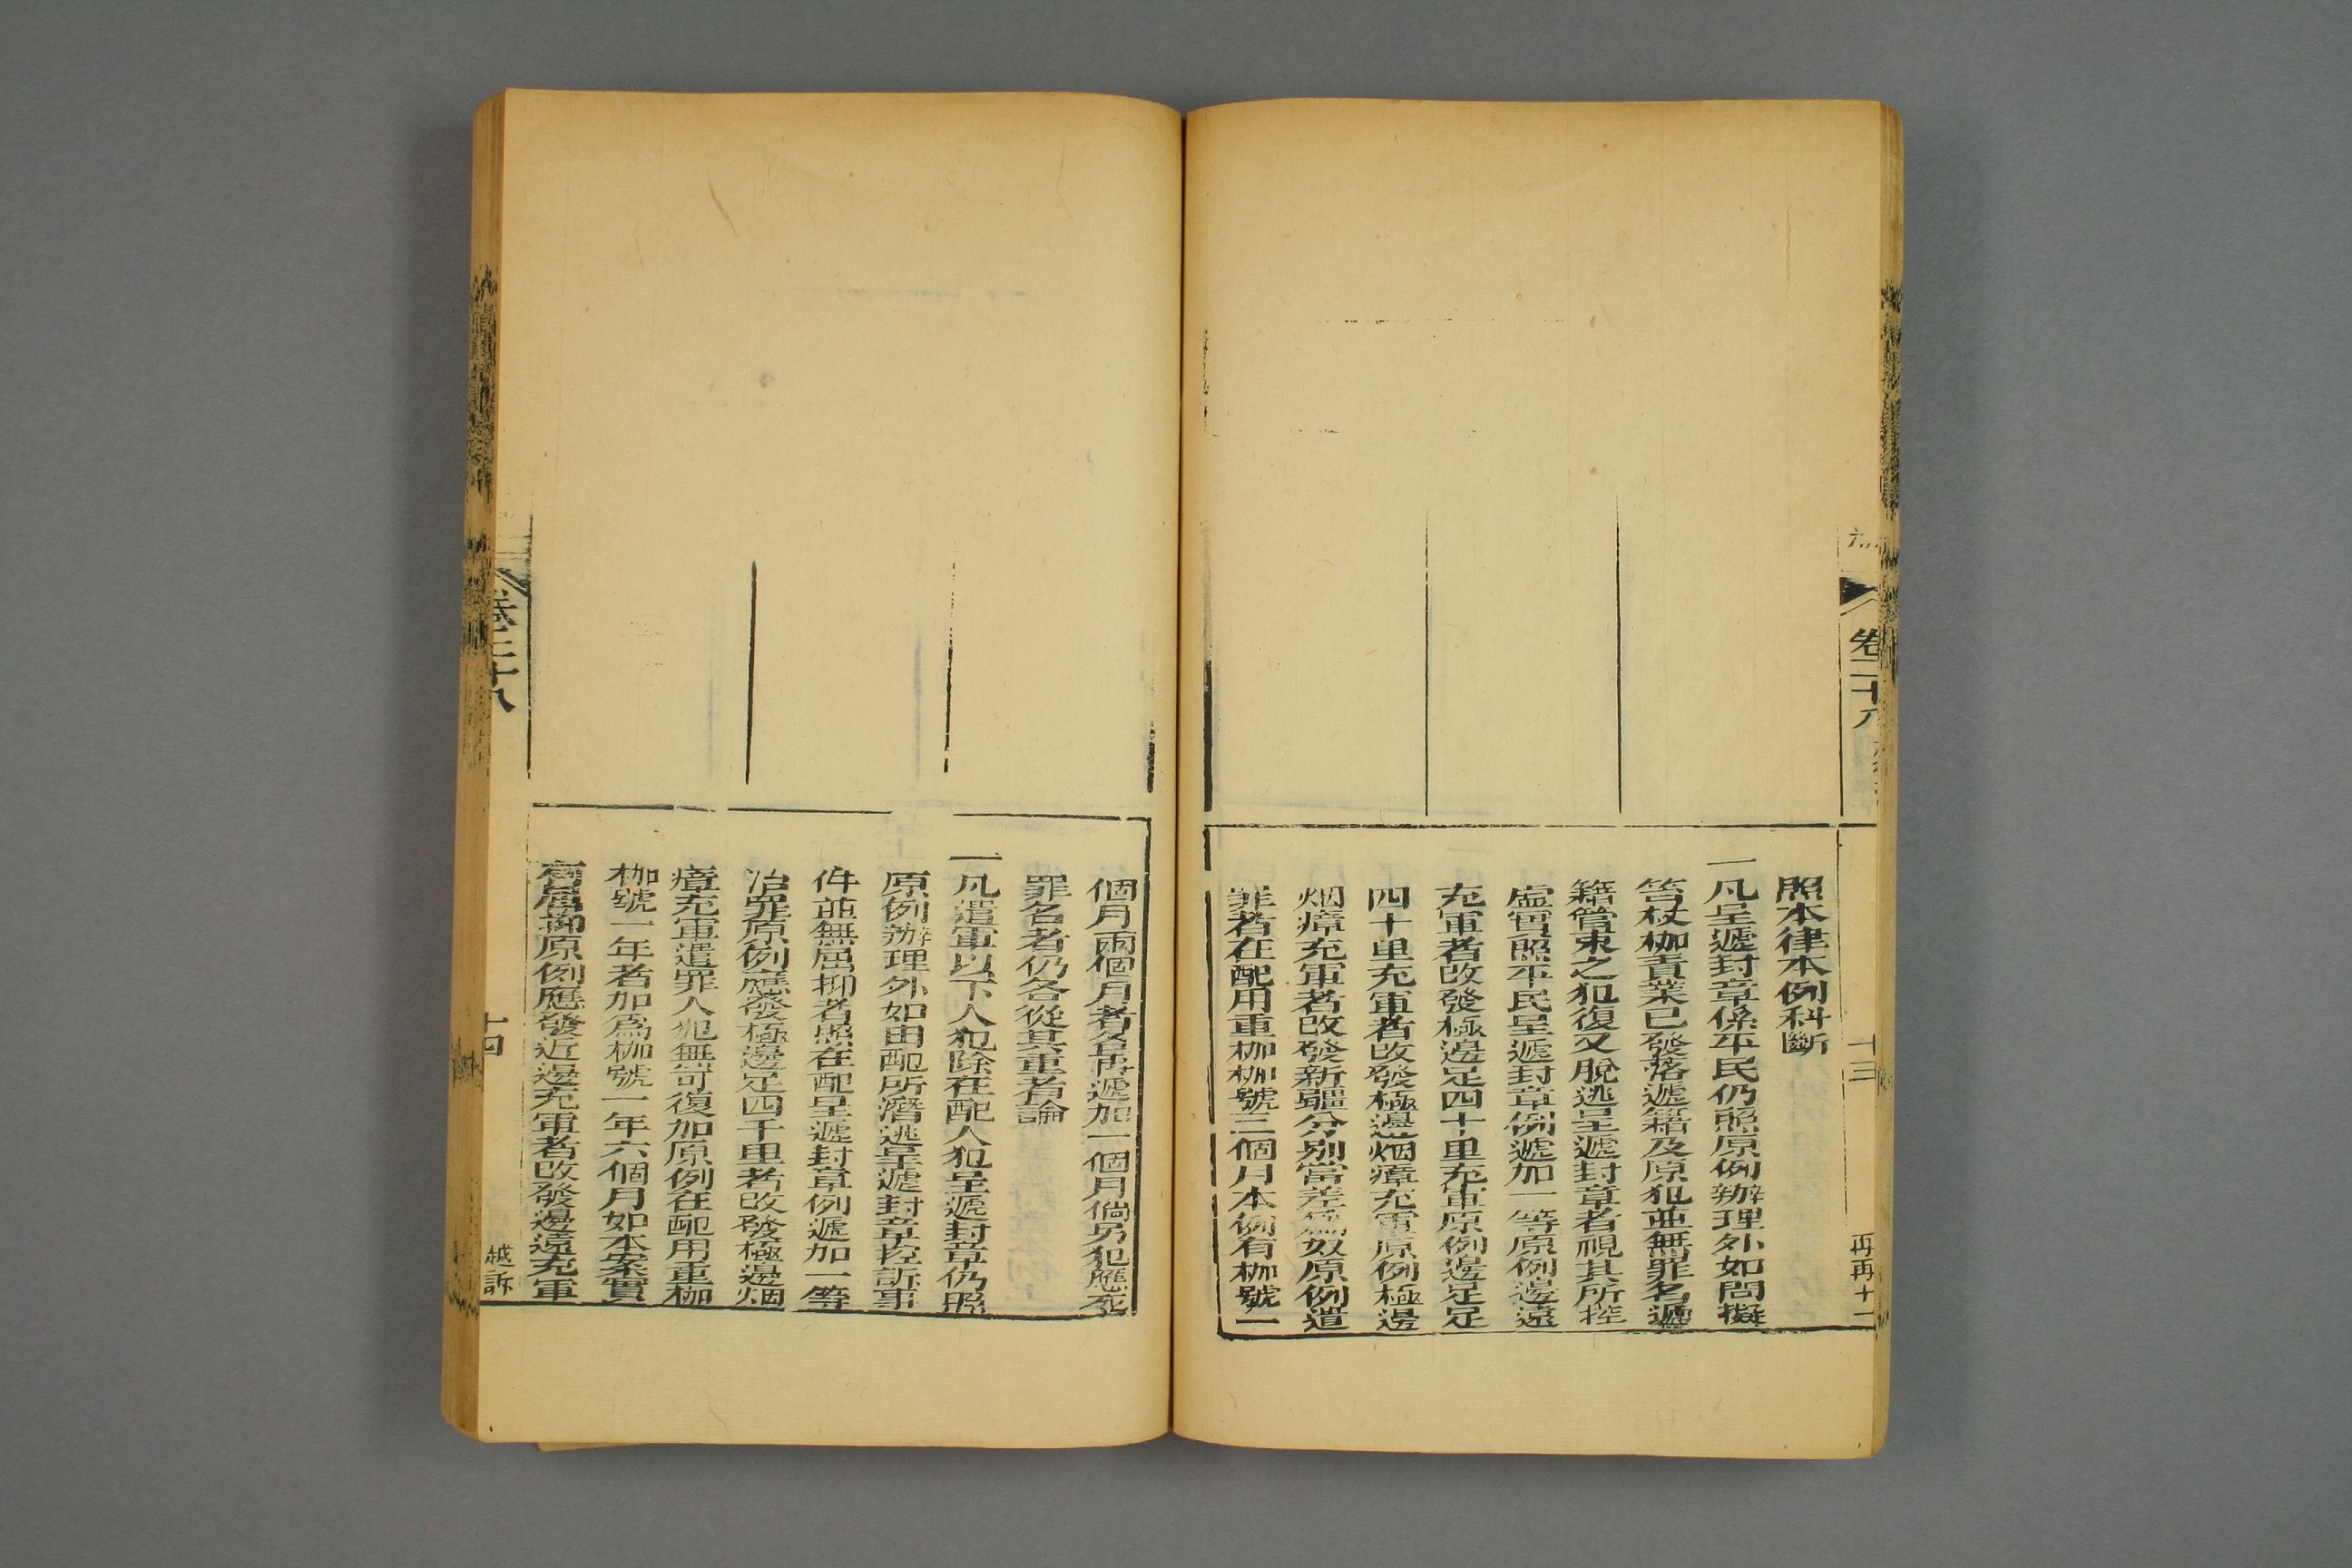 卷二十八
十三
再再十一
照本律本例科斷
一凡呈遞封章係平民仍照原例辦理外如問擬
笞杖枷責業已發落遞籍及原犯並無罪名遞
籍管束之犯復又脫逃呈遞封章者視其所控
虛實照平民呈遞封章例遞加一等原例邊遠
充軍者改發極邊足四十里充軍原例邊足足
四十里充軍者改發極邊烟瘴充軍原例極邊
烟瘴充軍者改發新疆分別當差為奴原例遣
罪者在配用重枷枷號三個月本例有枷號一
個月兩個月者各再遞加一個月倘另犯應死
罪名者仍各從其重者論
一凡遣軍以下人犯除在配人犯呈遞封章仍照
原例辦理外如由配所潛逃呈遞封章控訴事
件並無屈抑者照在配呈遞封章例遞加一等
治罪原例應發極邊足四千里者改發極邊烟
瘴充軍遣罪人犯無可復加原例在配用重枷
枷號一年者加為枷號一年六個月如本案實
有屈抑原例應發近邊充軍者改發邊遠充軍
卷二十八
十四
越訴